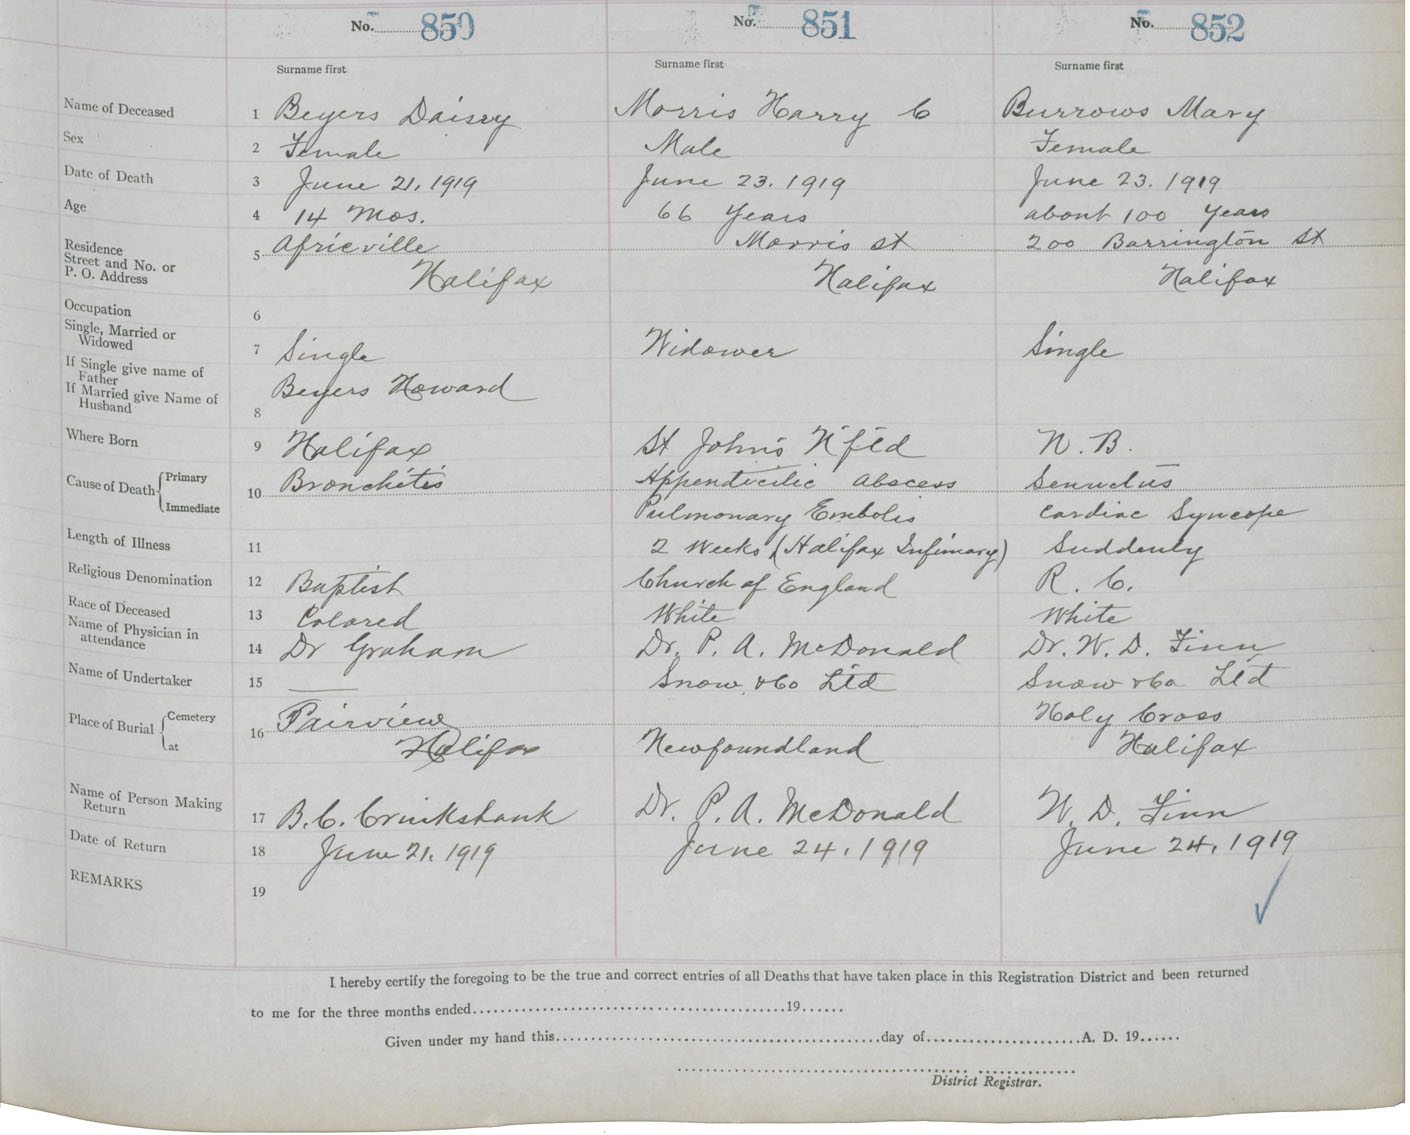 No. 850 No. 851 No. 852
Surname first Surname first Surname first
Name of Deceased 1 Beyers Daisey Morris Harry C Burrows Mary
Sex 2 Female Male Female
Date of Death 3 June 21, 1919 June 23. 1919 June 23. 1919
Age 4 14 Mos. 66 Years about 100 Years
Residence 5 Africville Morris St 200 Barrington St
Street and No. or
P. O. Address Halifax Halifax Halifax
Occupation 6
Single, Married or
Widowed 7 Single Widower Single
If Single give name of
Father Beyers Howard
If Married give Name of
Husband 8
Where Born 9 Halifax St John's N'f'ld N. B.
Cause of Death Primary 10 Bronchitis Appendicilic Abscess Senuctus
Immediate Pulmonary Embolis Cardiac Syncope
Length of Illness 11 2 Weeks (Halifax Infimary) Suddenly
Religious Denomination 12 Baptist Church of England R. C.
Race of Deceased 13 Colored White White
Name of Physician in
attendance 14 Dr Graham Dr. P. A. McDonald Dr. W. D. Finn
Name of Undertaker 15 Snow & Co Ltd Snow & Co Ltd
Place of Burial Cemetery 16 Fairview Holy Cross
at Halifax Newfoundland Halifax
Name of Person Making
Return 17 B. C. Cruikshank Dr. P. A. McDonald W. D. Finn
Date of Return 18 June 21, 1919 June 24, 1919 June 24, 1919
REMARKS 19
I hereby certify the foregoing to be the true and correct entries of all Deaths that have taken place in this Registration District and been returned
to me for the three months ended 19
Given under my hand this day of A. D. 19
District Registrar.